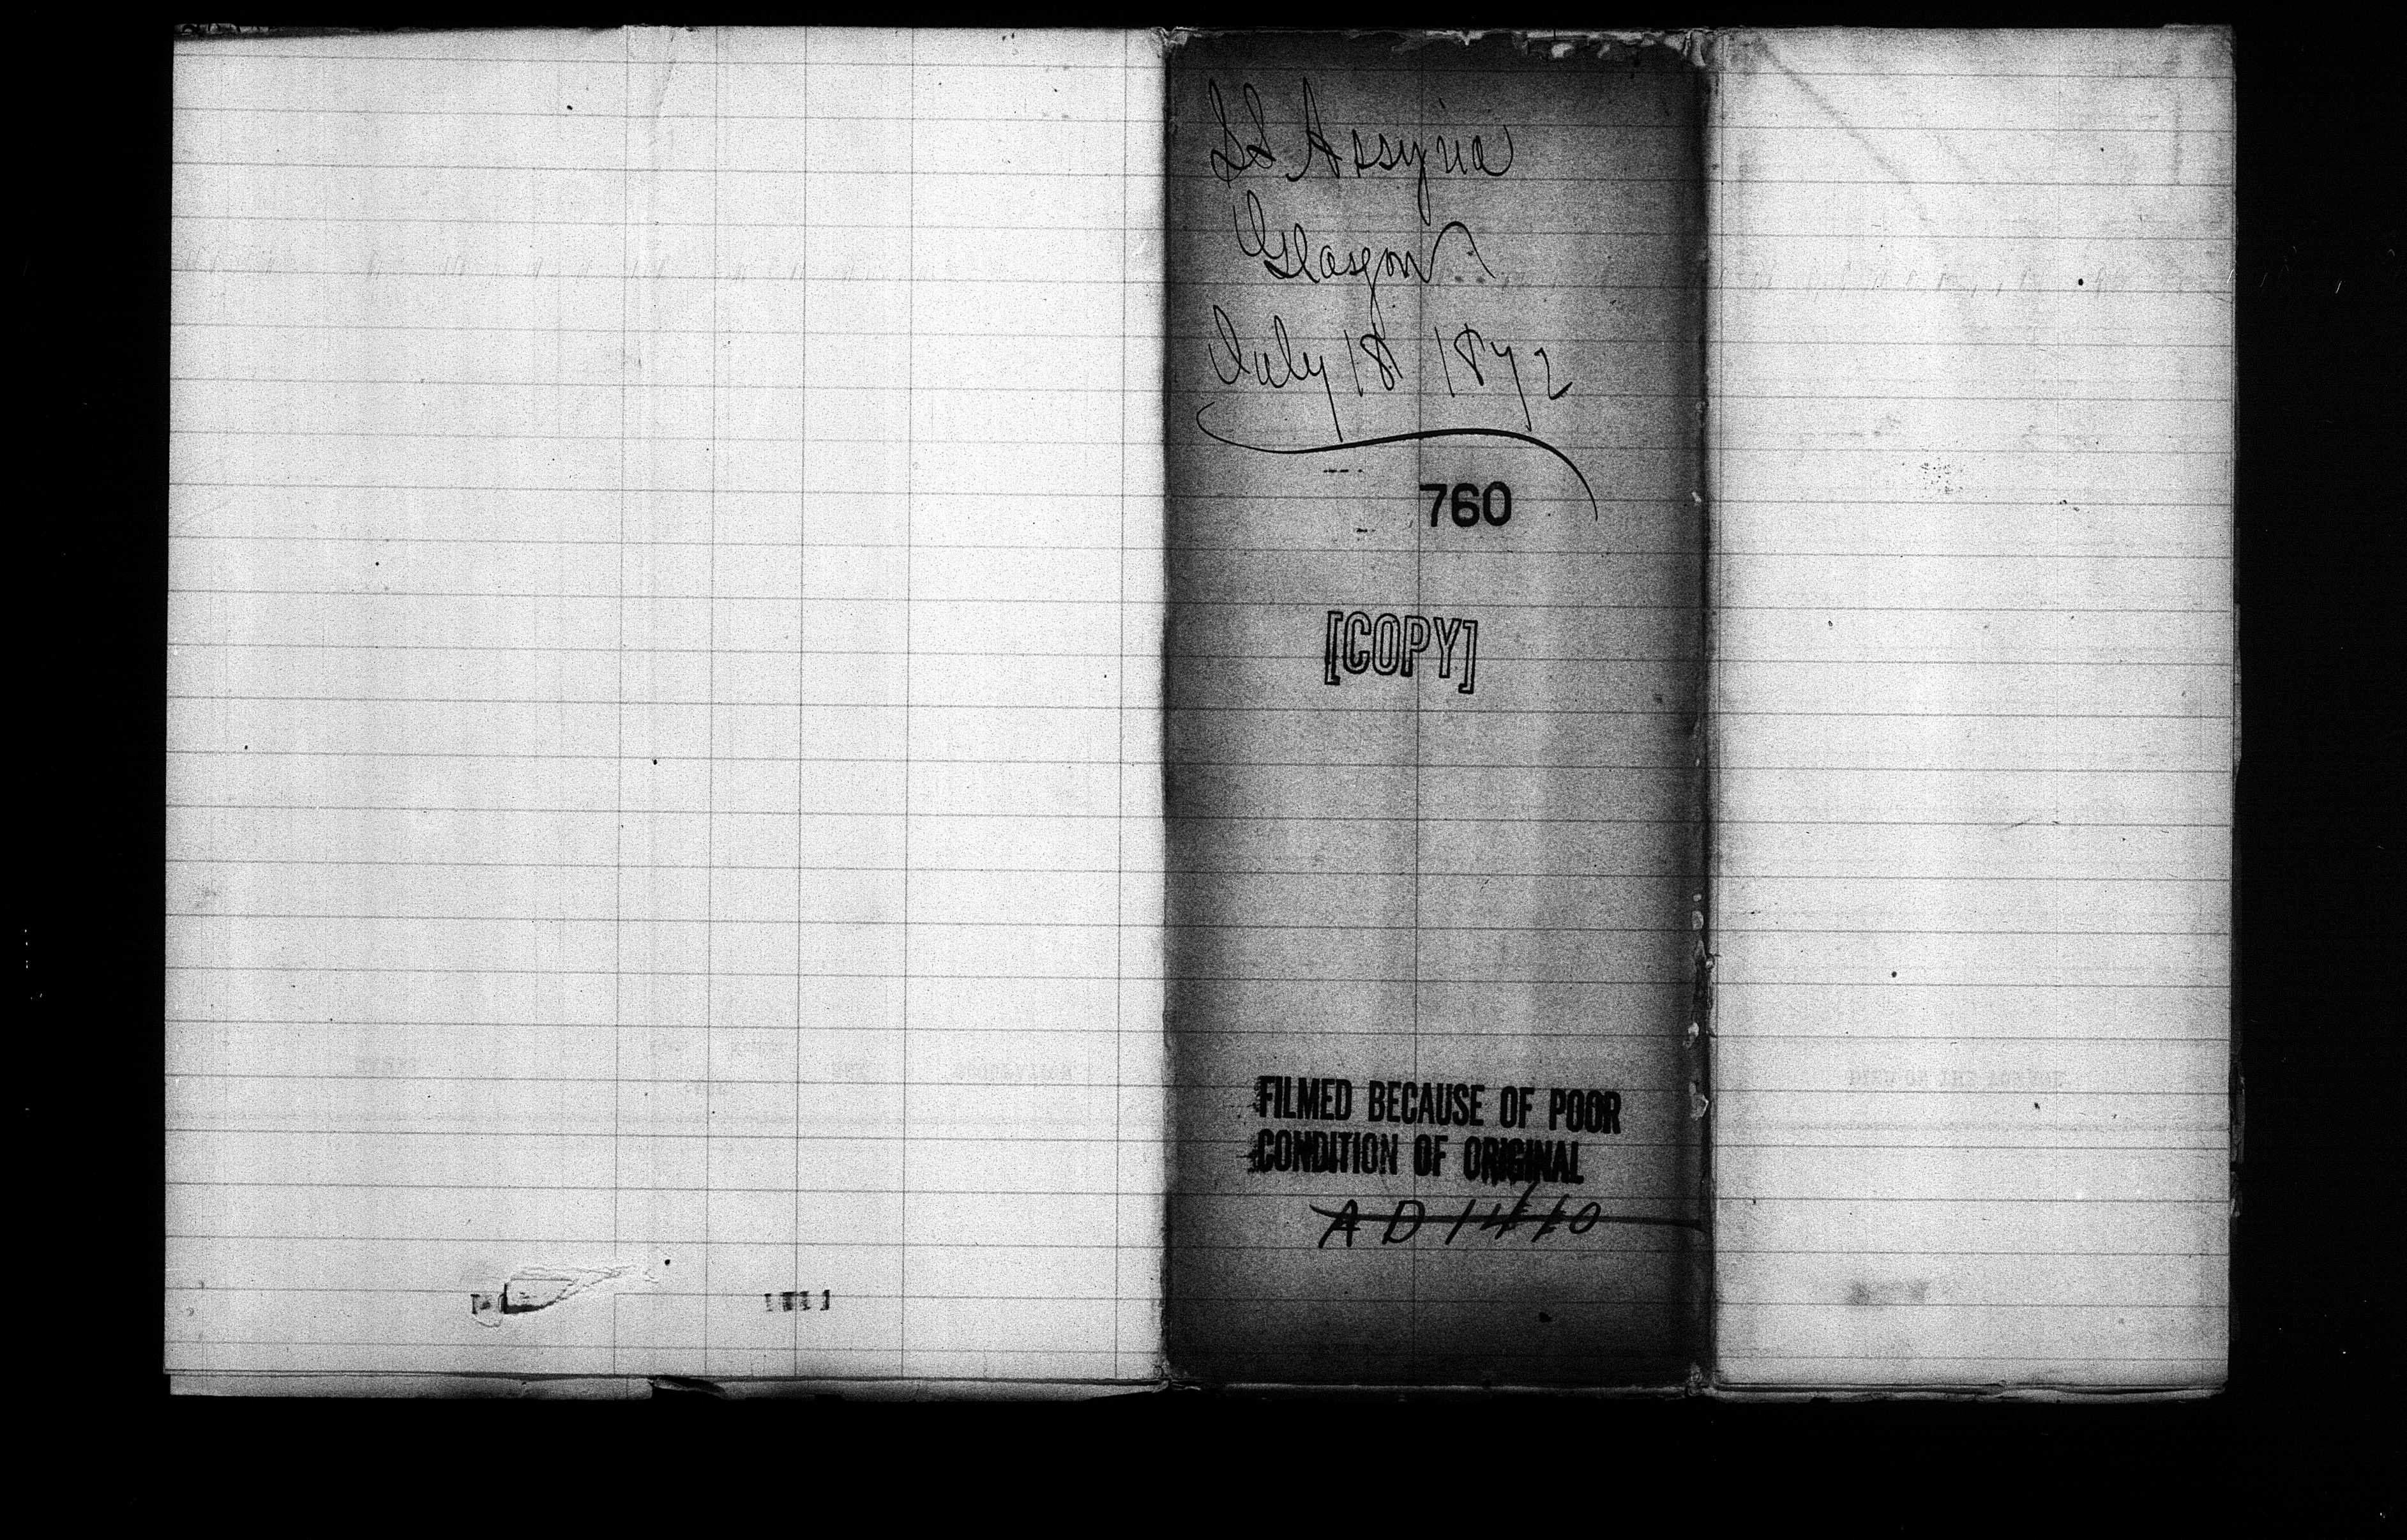 SS Assyria
Glasgow
July 18 1872
760
[COPY]
FILMED BECAUSE OF POOR
CONDITION OF ORIGINAL
A D 1410